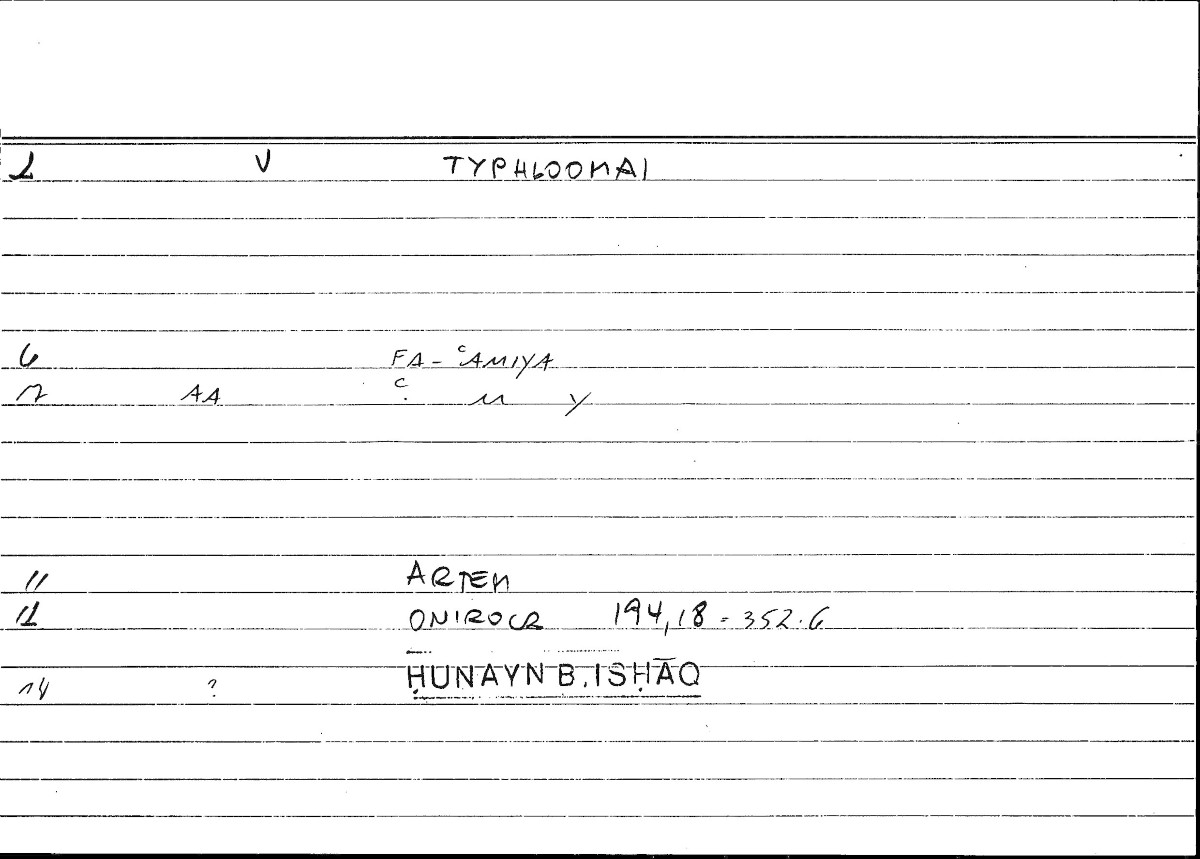 1 V TYPHLOOMAI
6 FA-ʿAMIYA
7 AA ʿ M Y
11 ARTEM
12 ONIROCR 194,18 = 352.6
14 ? ḤUNAYN B. ISḤĀQ